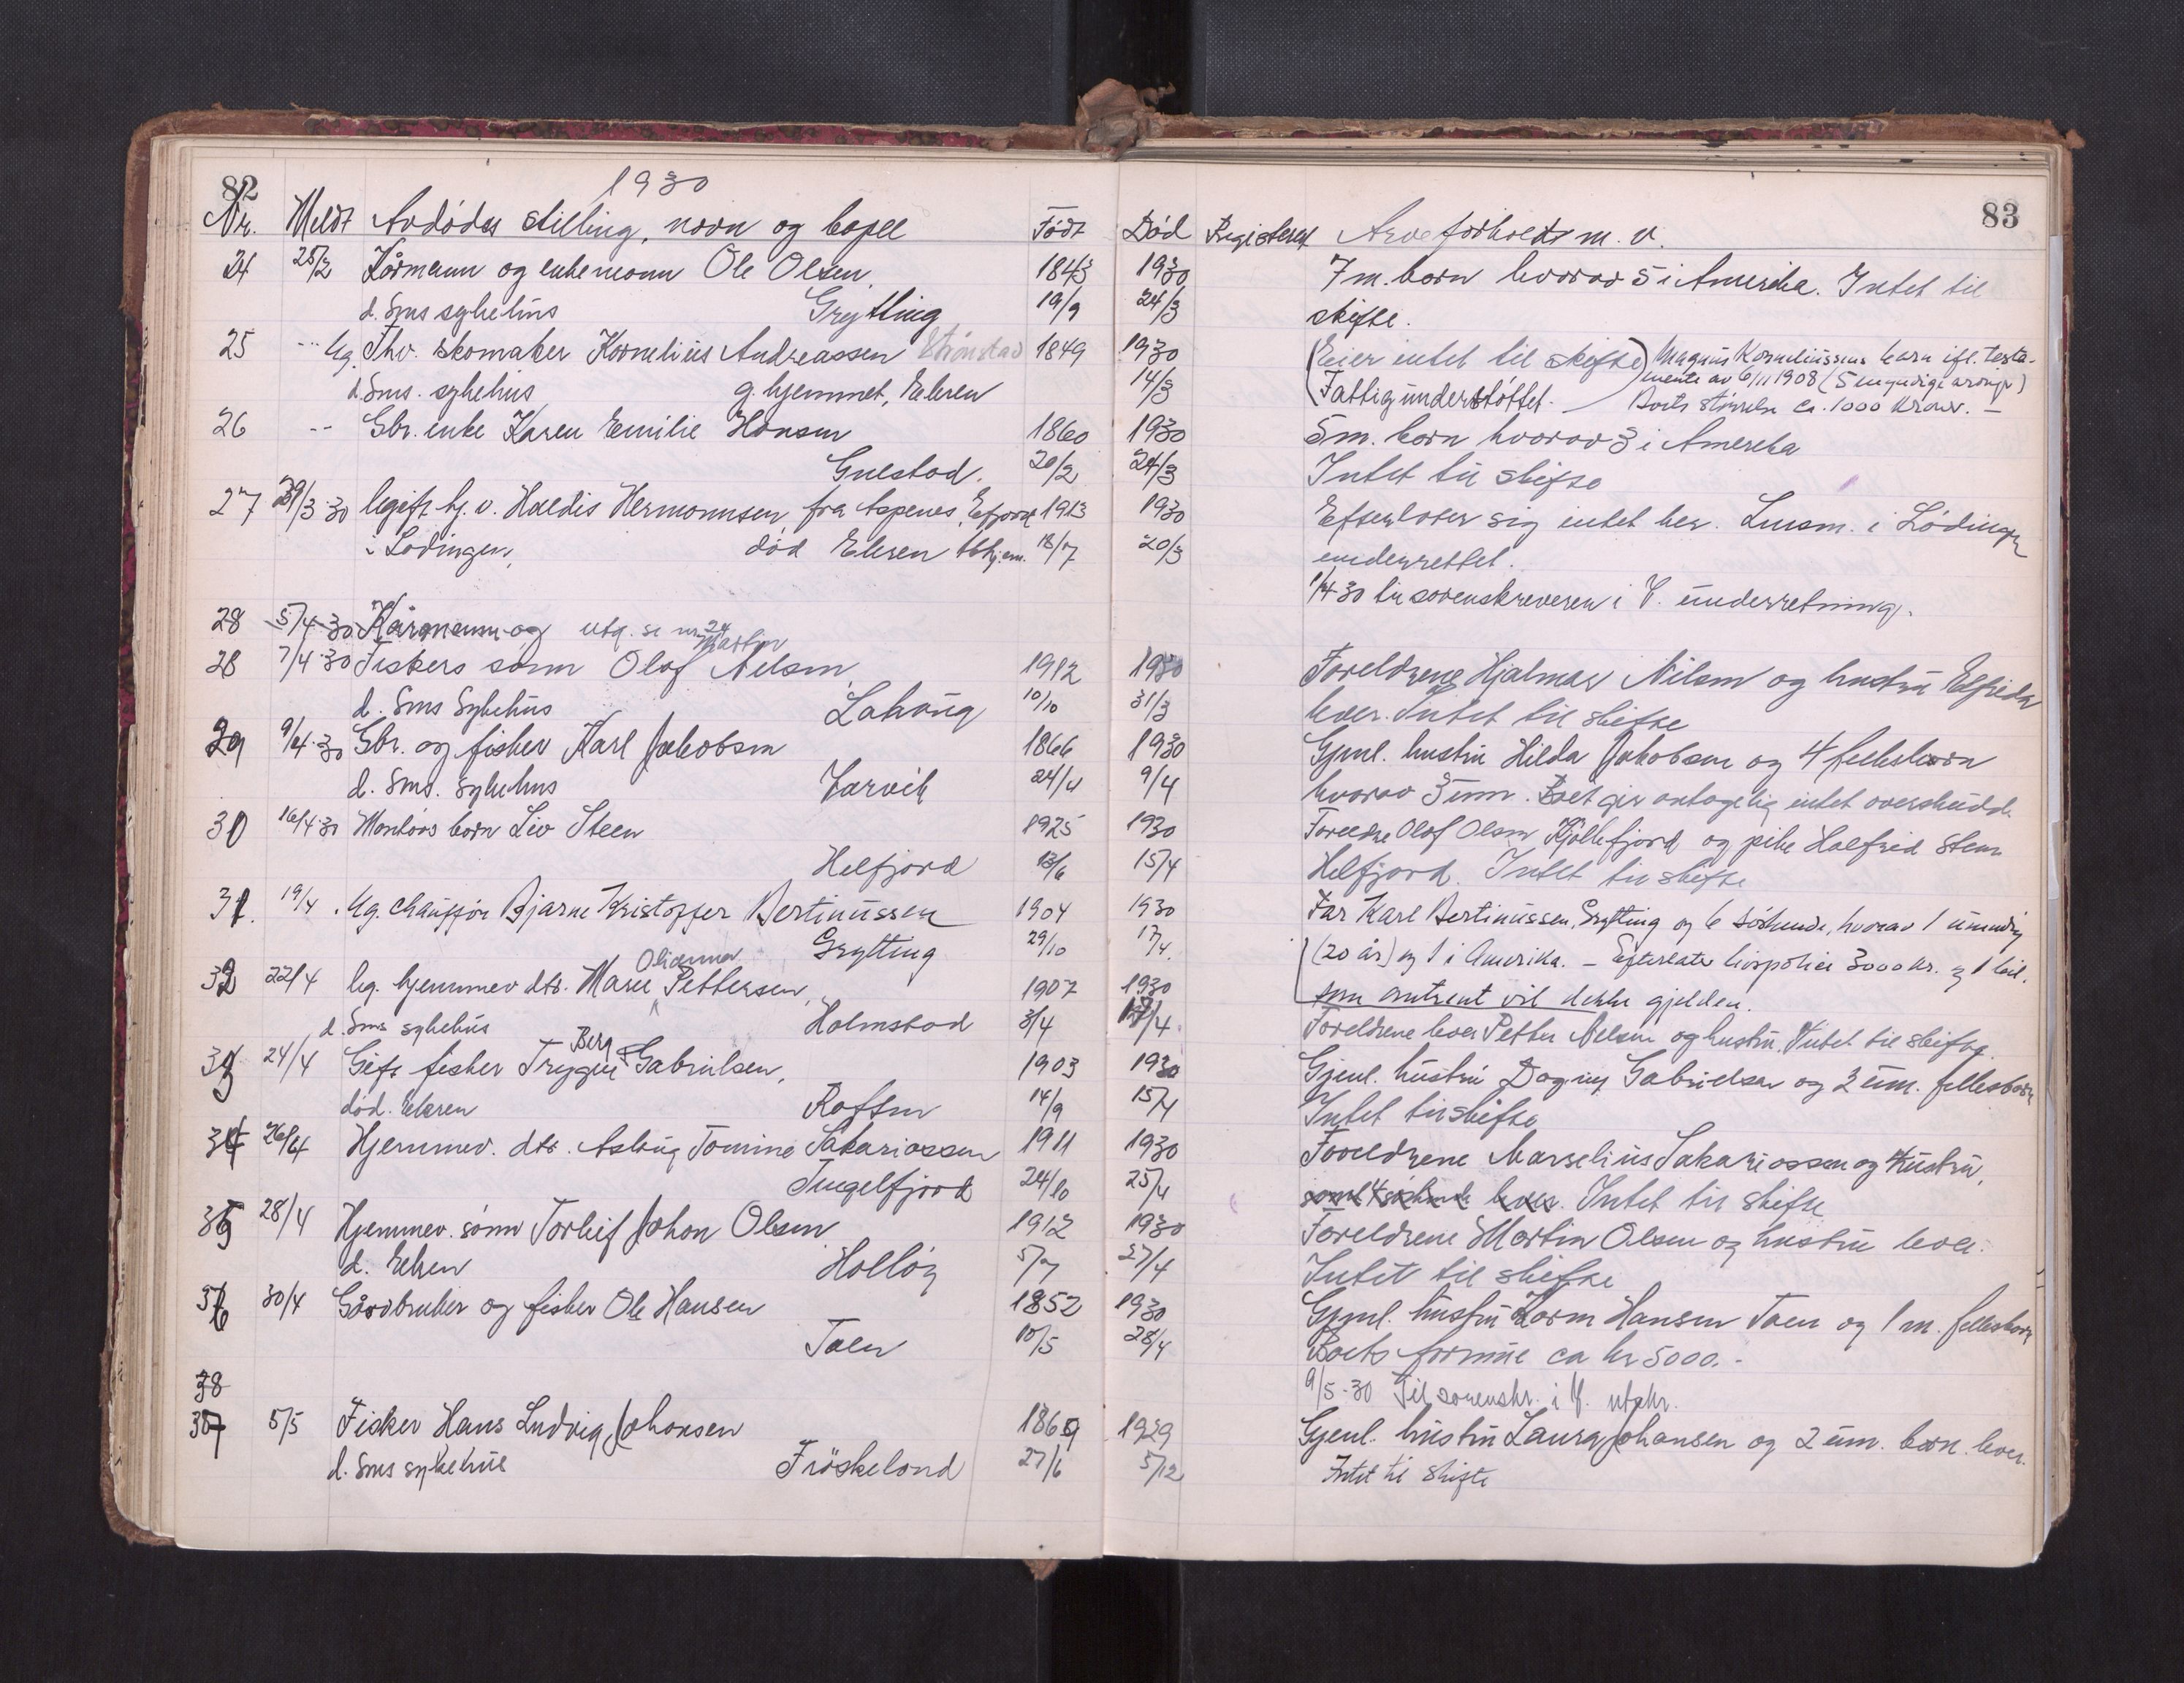 82
1930
83
Nr. Meldt Avdødes stilling, navn og bopel Født Død Registrert Arveforhold m. v.
24 25/3 Kårmann og enkemann Ole Olsen 1843 1930 7 m. barn hvorav 5 i Amerika. Intet til
d. Sms sykehus Grytting 19/9 24/3 skifte.
25 -"- Ug. Fhv. skomaker Kornelius Andreassen Strønstad 1849 1930 (Eier intet til skifte) Magnus Korneliussens barn ifl. testa-
mente av 6/11 1908 (5 umyndige arvinger)
d. Sms. sykehus g. hjemmet, Eleren 14/3 Fattigunderstøttet. — Boets størrelse ca. 1000 kroner. —
26 -- Gbr. enke Karen Emilie Hansen 1860 1930 5 m. barn hvorav 3 i Amerika
Guestad. 20/2 24/3 Intet til skifte
27 29/3-30 Ugift hj. v. Haldis Hermannsen, fra Aspenes, Efjord 1913 1930 Efterlater sig intet her. Lensm. i Lødingen
i Lødingen, død Elesen tbhjem. 18/7 20/3 underrettet.
1/4-30 til sorenskriveren i V. underretning.
28 5/4-30 Kårmann og utg. se nr 24
Martin
28 7/4-30 Fiskers sønn Olaf Nilsen 1912 1930 Foreldrene Hjalmar Nilsen og hustru Elfrida
d. Sms Sykehus Lahaug 10/10 31/3 lever. Intet til skifte
29 9/4-30 Gbr. og fisker Karl Jakobsen 1866 1930 Gjenl. hustru Hilda Jakobsen og 4 fellesbarn
d. Sms. Sykehus Jarvik 24/4 9/4 hvorav 3 um. Boet gir antagelig intet overskudd.
30 16/4-30 Montørs barn Liv Steen 1925 1930 Foreldre Olaf Olsen Kjøllefjord og pike Halfrid Steen
Helfjord 13/6 15/4 Helfjord. Intet til skifte
31. 19/4. Ug. chauffør Bjarne Kristoffer Bertinussen 1904 1930 Far Karl Bertinussen, Grytting og 6 søskende, hvorav 1 umyndig
Grytting 29/10 17/4. (20 år) og 1 i Amerika. — Efterlatt livspolice 3000 kr. og 1 bil.
Olianna
32 22/4 Ug. hjemmev. dtr. Marie Pettersen, 1907 1930 som omtrent vil dekke gjelden.
d. Sms sykehus Holmstad 3/4 17/4. Foreldrene lever Petter Nilsen og hustru. Intet til skifte
Berg
33 24/4 Gift fisker Trygve Gabrielsen, 1903 1930 Gjenl. hustru Dagny Gabrielsen og 2 um. fellesbarn
død. Elesen Roftsen 14/9 15/4 Intet til skifte
34 26/4 Hjemmev. dtr. Aslaug Tomine Sakariassen 1911 1930 Foreldrene Marselius Sakariassen og hustru,
Tengelfjord 24/10 25/4 samt 4 søskende lever. Intet til skifte
35 28/4 Hjemmev. sønn Torleif Johan Olsen 1912 1930 Foreldrene Martin Olsen og hustru lever.
d. Elesen Holløy 5/7 27/4 Intet til skifte
36 30/4 Gårdbruker og fisker Ole Hansen 1852 1930 Gjenl. hustru Karen Hansen Taen og 1 m. fellesbarn
Taen 10/5 28/4 Boets formue ca kr 5000.-
38 9/5-30 Til sorenskr. i V. utskr.
37 5/5 Fisker Hans Ludvig Johansen 1869 1929 Gjenl. hustru Laura Johansen og 2 um. barn lever.
d. Sms sykehus Frøskeland 27/6 5/12 Intet til skifte